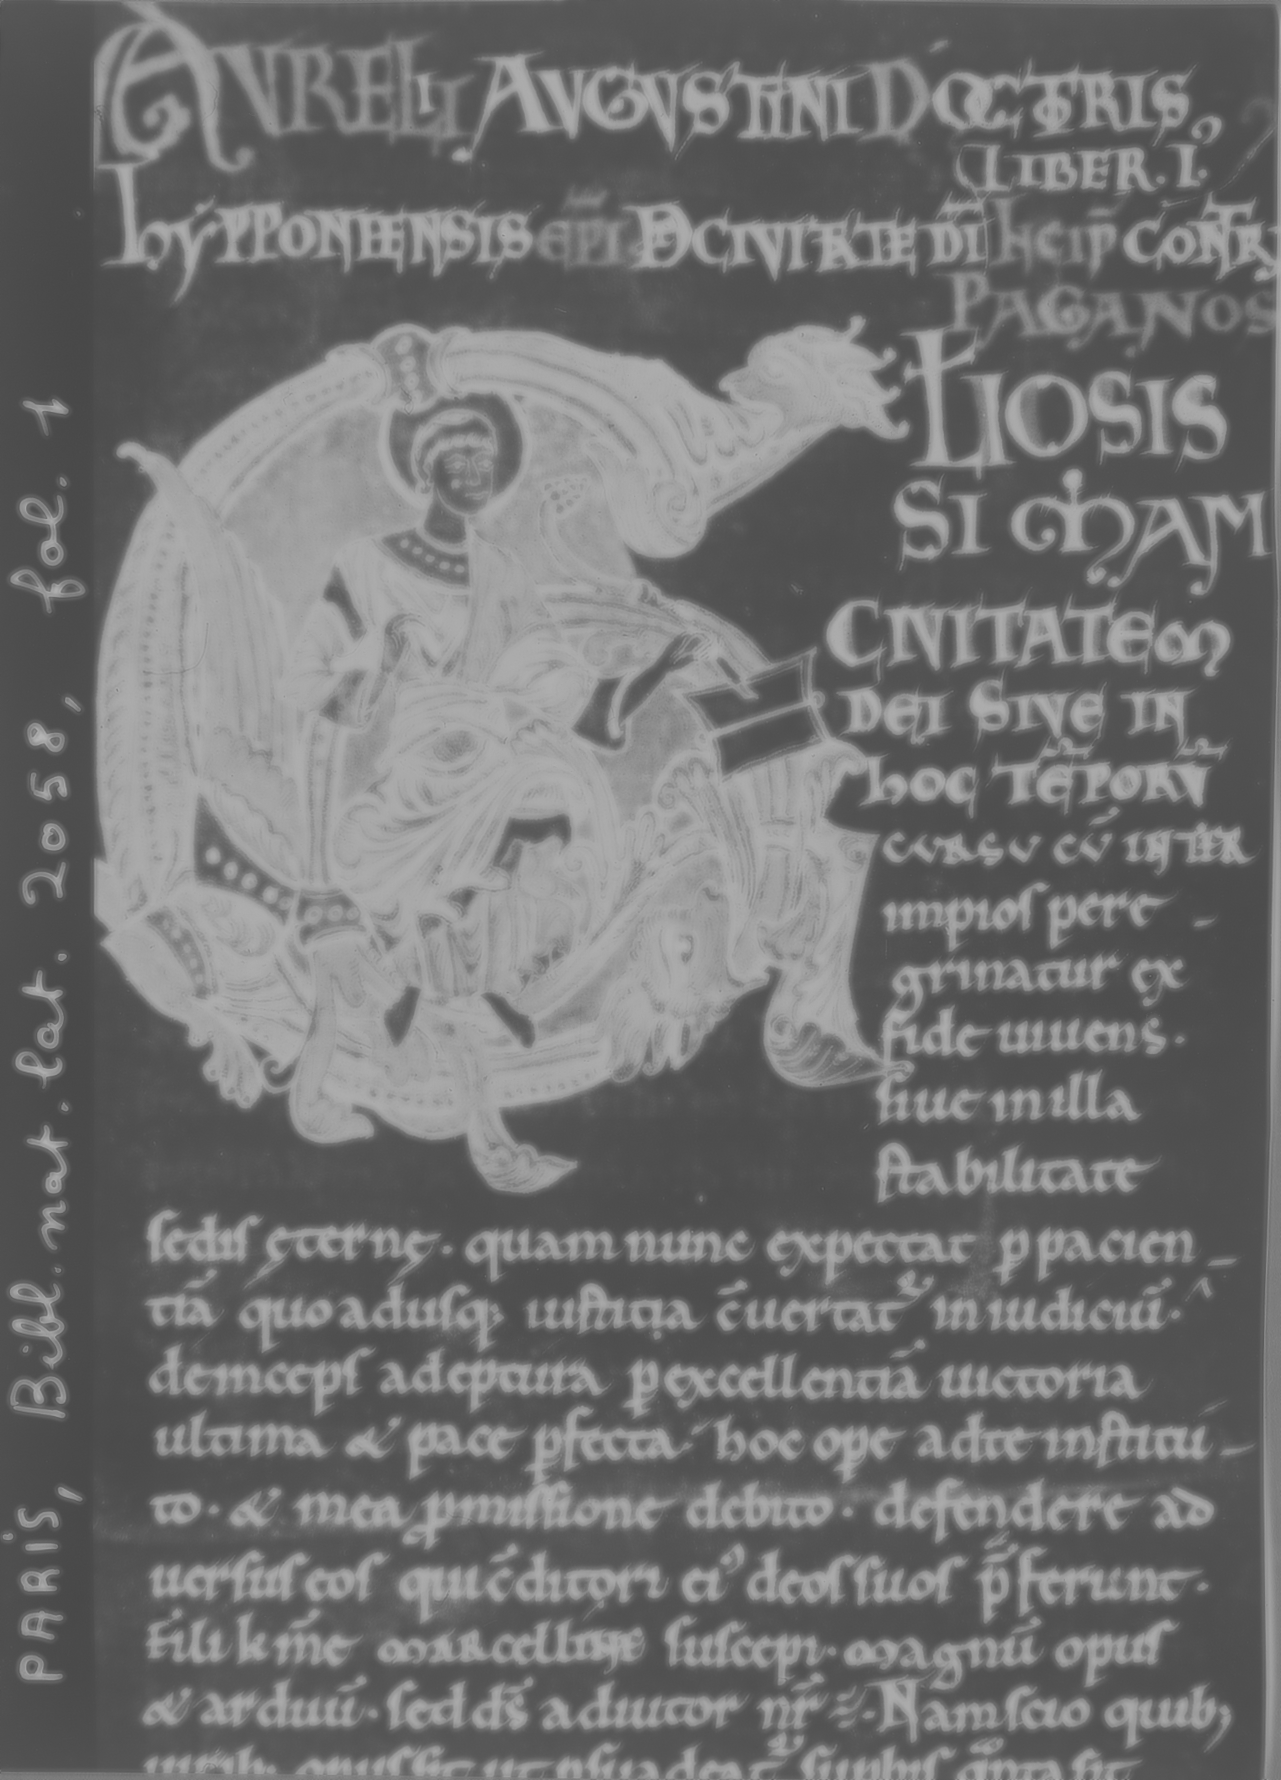 AURELII AUGUSTINI DOCTORIS
LIBER. I.
hyPPONIENSIS EPI DE CIVITATE DI Incip CONTRA
PAGANOS
TIOSIS
SIMAM
CIVITATEM
DEI SIVE IN
hOC TEPORU
CURSU CU INTER
impios pere-
grinatur ex
fide uiuens.
siue in illa
stabilitate
sedis ęternę. quam nunc expectat p pacien-
tiā quoadusq; iustitia c̄uertat in iudiciū.
deinceps adeptura p excellentiā uictoria
ultima & pace pfecta. hoc ope ad te institu-
to. & mea pmissione debito. defendere ad
uersus eos qui c̄ditori ei deos suos p̄ferunt.
fili km̄e marcelline suscepi. magnū opus
& arduū. sed ds̄ adiutor nr̄ ÷. Nam scio quib;
uirib; opus sit ut psuadeat supbis q̄nta sit
PARIS, Bibl. nat. lat. 2058, fol. 1